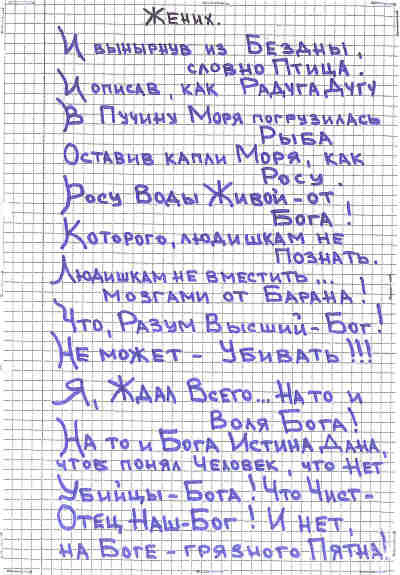 Жених.
И вынырнув из Бездны,
словно Птица.
И описав, как Радуга Дугу
В Пучину Моря погрузилась
Рыба
Оставив капли Моря, как
Росу.
Росу Воды Живой – от
Бога!
Которого, людишкам не
познать.
Людишкам не вместить...
мозгами от Барана!
Что, Разум Высший – Бог!
Не может – Убивать!!!
Я, Ждал Всего... На то и
Воля Бога!
На то и Бога Истина Дана,
чтоб понял Человек, что Нет
Убийцы – Бога! Что Чист –
Отец Наш – Бог! И нет,
на Боге – грязного Пятна!